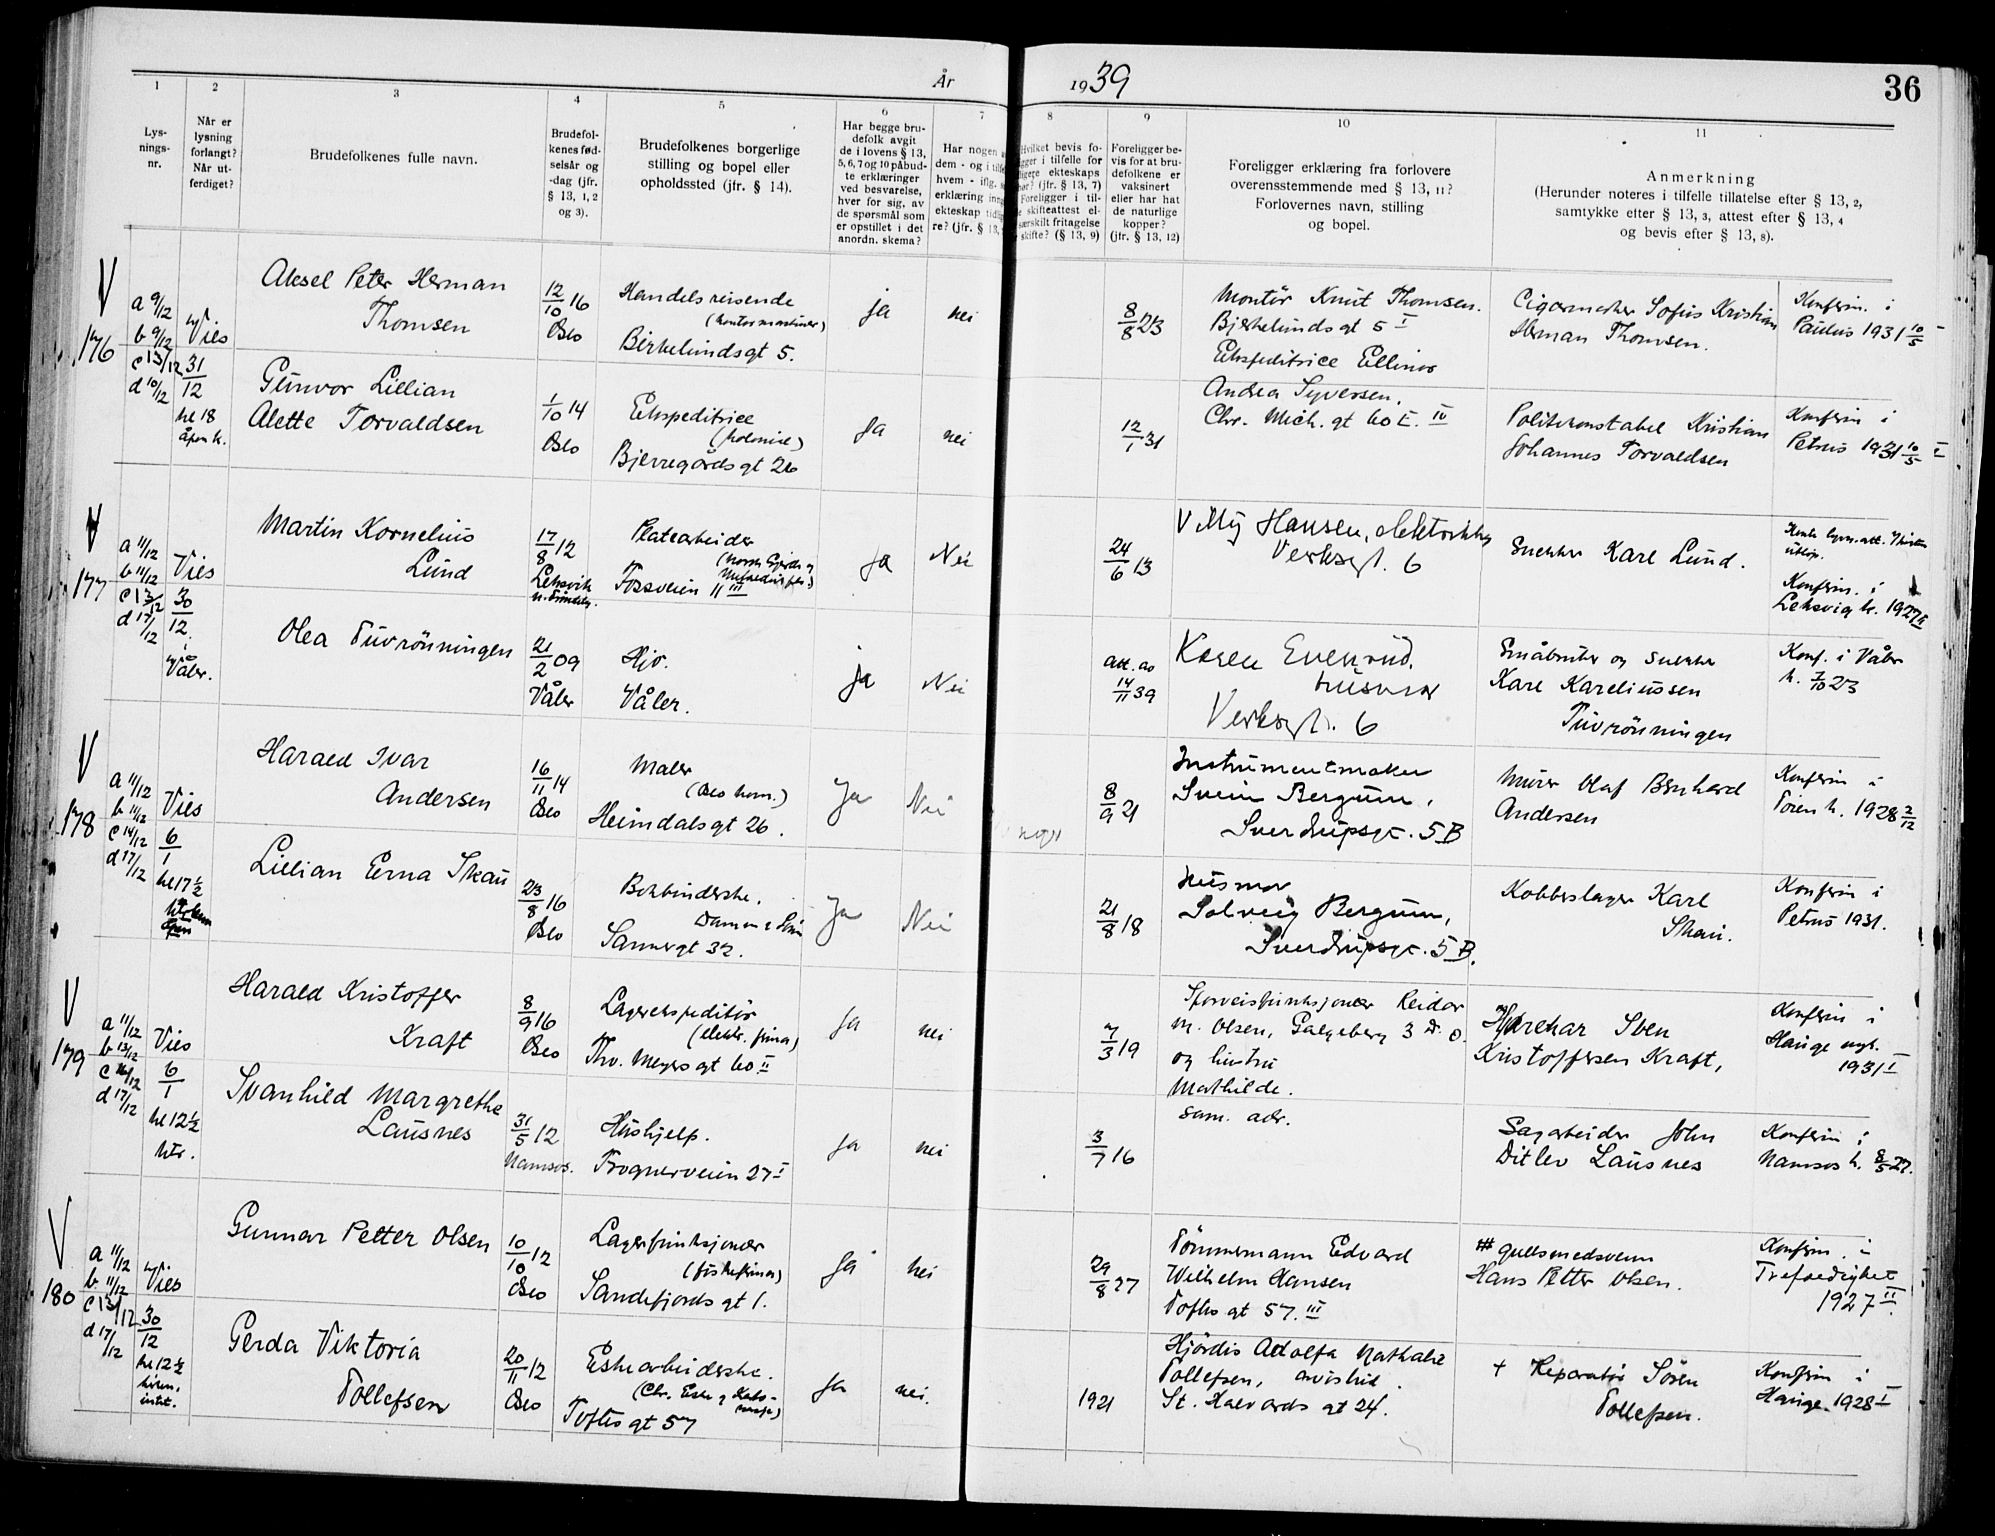 År 1939
36
1
2
3
4
5
6
7
8
9
10
11
Lys-
nings-
nr.
Når er
lysning
forlangt?
Når ut-
ferdiget?
Brudefolkenes fulle navn.
Brudefol-
kenes fød-
selsår og
-dag (jfr.
§ 13, 1, 2
og 3).
Brudefolkenes borgerlige
stilling og bopel eller
opholdssted (jfr. § 14).
Har begge bru-
defolk avgit
de i lovens § 13,
5, 6, 7 og 10 påbud-
te erklæringer
ved besvarelse,
hver for sig, av
de spørsmål som
er opstillet i det
anordn. skema?
Har nogen
dem - og i
hvem - iflg.
erklæring
ekteskap
re? (jfr. § 13,
Hvilket bevis fo-
i tilfelle for
ekteskaps
(jfr. § 13, 7)
Foreligger i til-
skifteattest el-
fritagelse
skifte? (§ 13, 9)
Foreligger be-
vis for at bru-
defolkene er
vaksinert
eller har hat
de naturlige
kopper?
(jfr. § 13, 12)
Foreligger erklæring fra forlovere
overensstemmende med § 13, 11?
Forlovernes navn, stilling
og bopel.
Anmerkning
(Herunder noteres i tilfelle tillatelse efter § 13, 2,
samtykke efter § 13, 3, attest efter § 13, 4
og bevis efter § 13, 8).
V
176
a 9/12
b 9/12
c 13/12
d 10/12
Vies
31/12
kl 18
åpen k.
Aksel Peter Herman
Thomsen
12/10 16
Oslo
Handelsreisende
(kontormaskiner)
Birkelundsgt 5.
ja
nei
8/8 23
Montör Knut Thomsen.
Bjerkelundsgt 5 I
Ekspeditrice Ellinor
Andrea Syversen,
Chr. Mich. gt 60 E. IV
Cigarmaker Sofus Kristian
Herman Thomsen.
Konfirm. i
Paulus 1931 10/5 I
Gunvor Lillian
Alette Torvaldsen
1/10 14
Oslo
Ekspeditrice
(kolonial)
Bjerregårds gt 26
Ja
nei
12/1 31
Politikonstabel Kristian
Johannes Torvaldsen
Konfirm i
Petrus 1931 10/5 I
V
177
a 11/12
b 11/12
c 13/12
d 17/12
Vies
30/12.
i
Våler.
Martin Kornelius
Lund
17/8 12
Leksvik
n. Tröndelag.
Platearbeider
Fossveien 11 III
Ja
Nei
24/6 13
Villy Hansen, elektriker
Verksgt. 6
Snekker Karl Lund.
Konfirm. i
Leksvig k. 1927 II
Olea Tuvrönningen
21/2 09
Våler
Hjv.
Våler.
ja
Nei
att. av
14/11 39
Karen Evenrud,
husmor
Verksgt. 6
Småbruker og snekker
Karl Kareliussen
Tuvrönningen
Konf. i Våler
k. 7/10 23
V
178
a 11/12
b 11/12
c 14/12
d 17/12
Vies
6/1
kl 17 ½
Harald Ivar
Andersen
16/11 14
Oslo
Maler
(Oslo kom.)
Heimdalsgt 26.
Ja
Nei
8/9 21
Instrumentmaker
Svein Bergum,
Sverdrupsgt. 5 B
Murer Olaf Bernhard
Andersen
Konfirm i
Töien k. 1928 2/12
Lillian Erna Skau
23/8 16
Oslo
Bokbinderske.
Damm & Sön
Sannergt 32.
Ja
Nei
21/8 18
Husmor
Solveig Bergum,
Sverdrupsgt. 5 B.
Kobberslager Karl
Skau.
Konfirm i
Petrus 1931.
V
179
a 11/12
b 13/12
c 16/12
d 17/12
Vies
6/1
kl 12 ½
ktr.
Harald Kristoffer
Kraft
8/9 16
Oslo
Lagerekspeditör
(elektr. firma)
Thv. Meyers gt 60 II
Ja
nei
7/3 19
Sporveisfunksjonær Reidar
M. Olsen, Galgeberg 3 D. O.
og hustru
Mathilde.
sam. adr.
Sven
Kristoffersen Kraft,
Konfirm i
Hauge mgh.
1931 I
Svanhild Margrethe
Lausnes
31/5 12
Namsos.
Hushjelp.
Frognerveien 27 I
Ja
nei
3/7 16
Sagarbeider John
Ditlev Lausnes
Konfirm i
Namsos k. 8/5 27.
V
180
a 11/12
b 11/12
c 13/12
d 17/12
Vies
30/12
kl 12 ½
Gunnar Petter Olsen
10/10 12
Oslo
Lagerfunksjonær
(fiskefirma)
Sandefjords gt 1.
Ja
nei
29/8 27
Tömmermann Edvard
Wilhelm Hansen
Toftes gt 57. III
gullsmedsvenn
Hans Petter Olsen.
Konfirm. i
Trefoldighet
1927 II.
Gerda Viktoria
Tollefsen
20/11 12
Oslo
Eskearbeiderske.
Toftes gt 57
Ja
nei.
1921
Hjördis Adolfa Nathalie
Tollefsen, avisbud.
St. Halvards gt 24.
+ Reparatör Sören
Tollefsen.
Konfirm i
Hauge. 1928 I